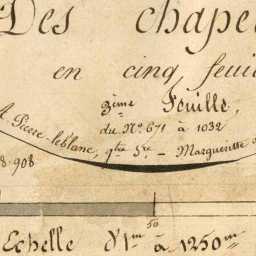 Des chape
en cinq feui
3ème Feuille,
du Nº 671 à 1032
A. Pierre-leblanc, gtre Sre - Marguerite
8.908
50
Echelle d'1m à 1250m